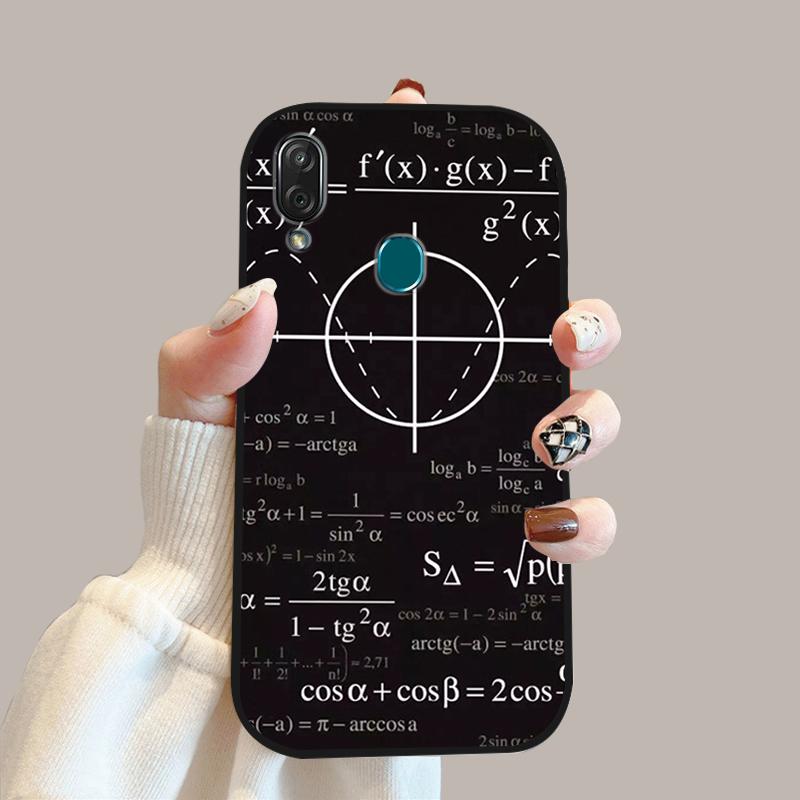 sin α cos α
logₐ b/c = logₐ b – lo
(x
(x) = f′(x)·g(x) – f / g²(x)
cos 2α = c
+ cos² α = 1
–a) = –arctga
logₐ b = log꜀ b / log꜀ a
= r logₐ b
tg²α+1 = 1 / sin² α = cosec²α
sin α
os x)² = 1 – sin 2x
S△ = √p(p
α = 2tgα / 1 – tg²α
tgx =
cos 2α = 1 – 2 sin² α
arctg(–a) = –arctg
+ 1/1! + 1/2! +...+ 1/n!) ≈ 2,71
cos α + cos β = 2cos
(–a) = π – arccos a
2sin α